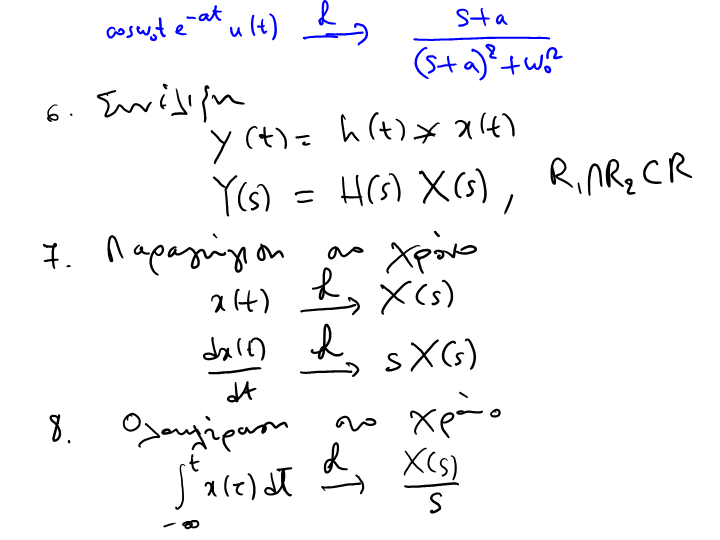 cosω₀t e^{-at} u(t) \xrightarrow{L} \frac{s+a}{(s+a)^2+ω_0^2}
6. Συνέλιξη
y(t) = h(t) * x(t)
Y(s) = H(s) X(s), R₁∩R₂⊂R
7. Παραγώγιση στο χρόνο
x(t) \xrightarrow{L} X(s)
\frac{dx(t)}{dt} \xrightarrow{L} sX(s)
8. Ολοκλήρωση στο χρόνο
\int_{-∞}^{t} x(τ) dτ \xrightarrow{L} \frac{X(s)}{s}